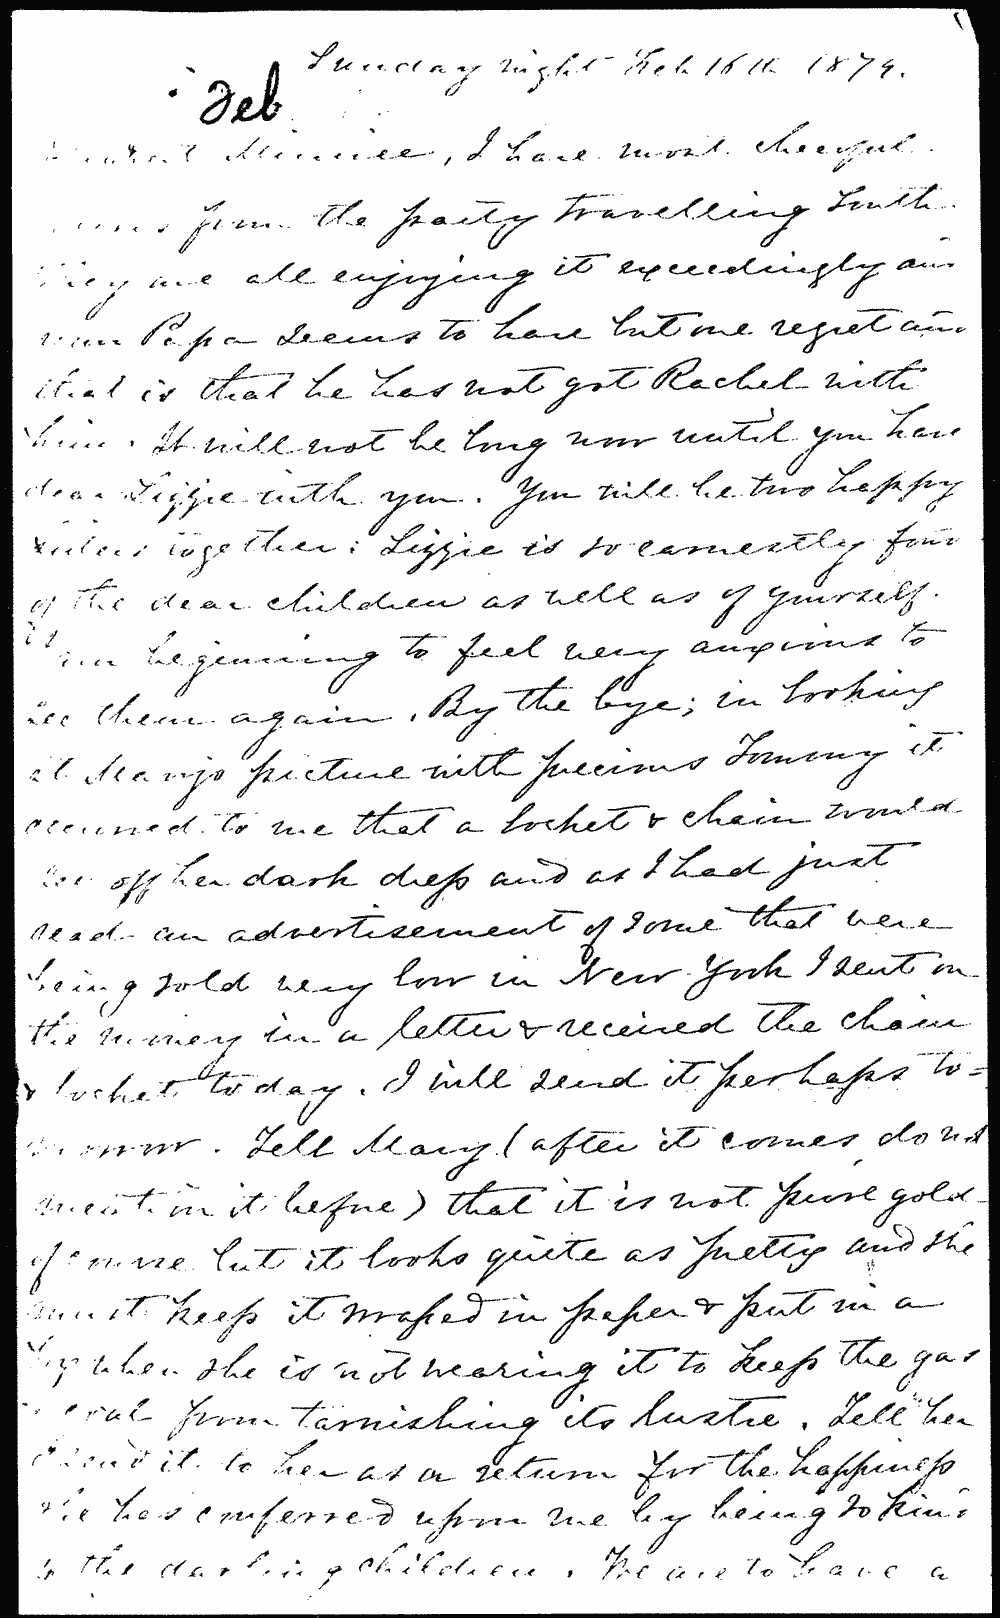 Sunday night Feb 16th 1879.
Feb
Dearest Minnie, I have most cheerful
news from the party travelling South.
They are all enjoying it exceedingly and
your Papa seems to have but one regret and
that is that he has not got Rachel with
him. It will not be long now until you have
dear Lizzie with you. You will be two happy
sisters together: Lizzie is so earnestly fond
of the dear children as well as of yourself.
I am beginning to feel very anxious to
see them again. By the bye; in looking
at Marys picture with precious Tommy it
occurred to me that a locket & chain would
set off her dark dress and as I had just
read an advertisement of some that were
being sold very low in New York I sent on
the money in a letter & received the chain
& locket today. I will send it perhaps to=
morrow. Tell Mary (after it comes, do not
mention it before) that it is not pure gold
of course but it looks quite as pretty and she
must keep it wraped in paper & put in a
box when she is not wearing it to keep the gas
& coal from tarnishing its lustre. Tell her
I send it to her as a return for the happiness
she has conferred upon me by being so kind
to the darling children. We are to have a